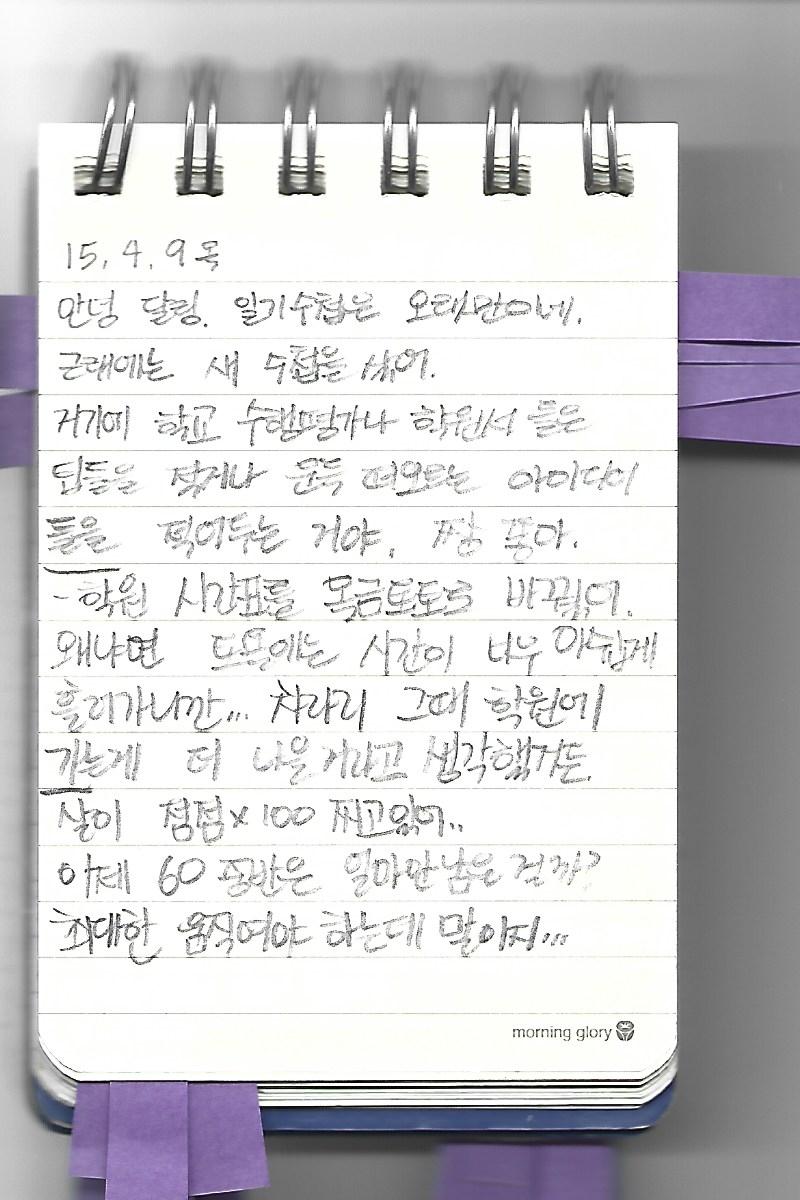 15. 4. 9 목
안녕 달링. 일기수첩은 오태만이네.
근래에는 새 수첩을 샀어.
거기에 학교 수행평가나 학원서 들은
팁들을 적거나 문득 떠오르는 아이디어
들을 적어두는 거야. 짱 좋아.
-학원 시간표를 목금토토로 바꿨어.
왜냐면 토욜에는 시간이 너무 아쉽게
흘러가니깐... 차라리 그때 학원에
가는게 더 나을거라고 생각했거든.
살이 점점×100 찌고있어..
이제 60 중반은 얼마만남은 걸까?
최대한 움직여야 하는데 말이지...
morning glory